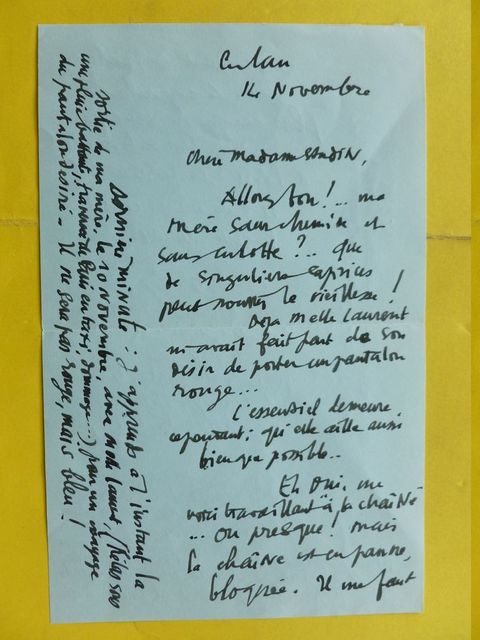 Culan
14 Novembre
Chère Madame SANDIN,
Allons bon ! ... ma
mère sans chemise et
sans culotte ? ... que
de singuliers caprices
peut nourrir la vieillesse !
Déjà Melle Laurent
m'avait fait part de son
désir de porter un pantalon
rouge...
L'essentiel demeure,
cependant, qu'elle aille aussi
bien que possible..
Eh oui, me
voici travaillant "à la chaîne"
... ou presque ! Mais
la chaîne est en panne,
bloquée. Il me faut
dernière minute : j'apprends à l'instant la
sortie de ma mère, le 10 Novembre, avec Melle Laurent, (hélas sous
une pluie battante, traversée de en taxi, dommage...) pour un essayage
du pantalon désiré - Il ne sera pas rouge, mais bleu !